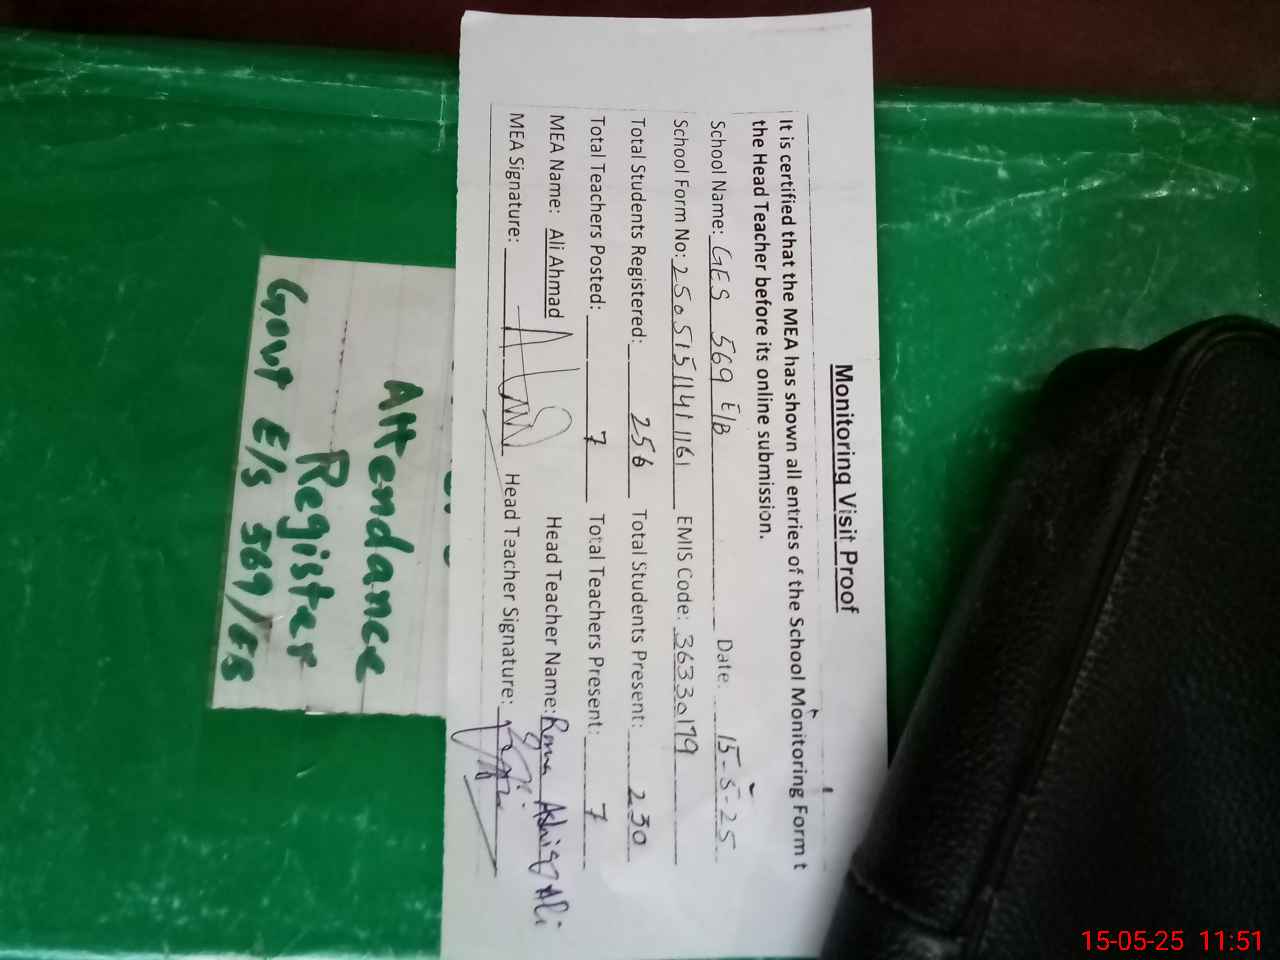 Monitoring Visit Proof
It is certified that the MEA has shown all entries of the School Monitoring Form t
the Head Teacher before its online submission.
School Name: GES 569 E/B Date: 15-5-25
School Form No: 250515141161 EMIS Code: 36330179
Total Students Registered: 256 Total Students Present: 230
Total Teachers Posted: 7 Total Teachers Present: 7
MEA Name: Ali Ahmad Head Teacher Name: Ali
MEA Signature: Head Teacher Signature:
Attendance
Register
Govt E/S 569/EB
15-05-25 11:51